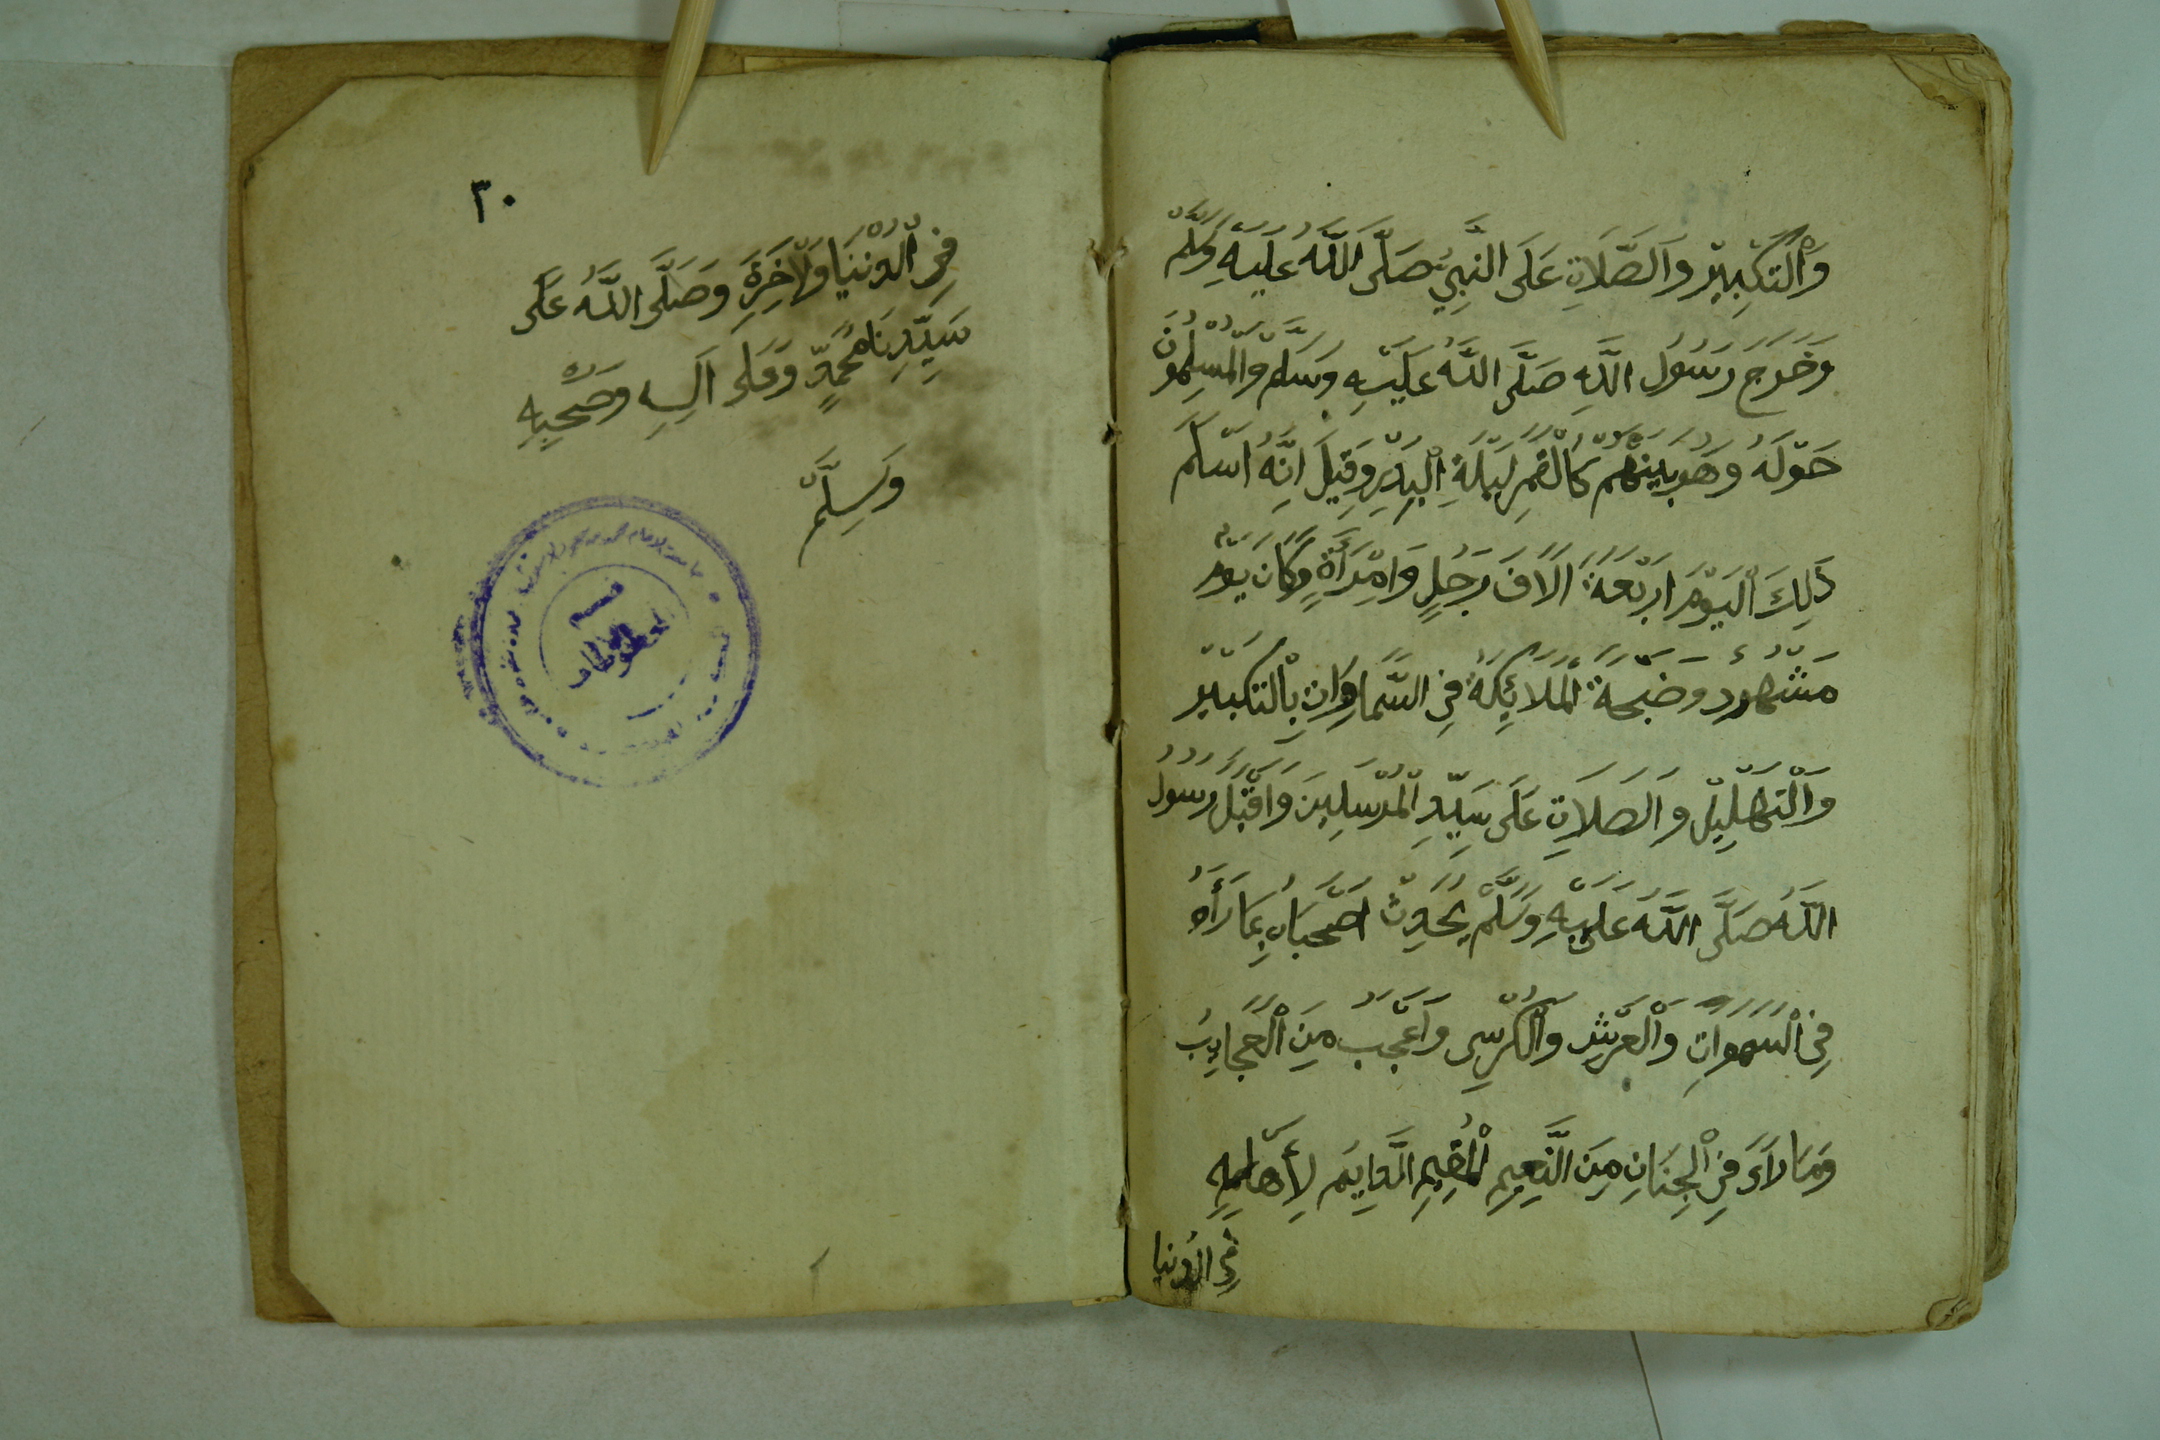 وَالْتَكْبِيْر وَالصَّلَاةِ عَلَى النَّبِيْ صَلَّى اللَّهُ عَلَيْهِ وَسَلَّمْ
وَخَرَجَ رَسُوُلُ اللَّهِ صَلَّى اللَّهُ عَلَيْهِ وَسَلَّمْ وَالْمُسْلِمُونَ
حَوْلَهُ وَهُوَ بَيْنَهُمْ كَالْقَمَرِ لَيْلَةِ الْبَدْرِ وَقِيلَ انَّهُ اسْلَمَ
ذَلِكَ الْيَوْمَ ارْبَعَةُ الَافَ رَجُلٍ وَامْرَأَةٍ وَكَانَ يَوْمٌ
مَشْهُود وضجة الْمَلَائِكَةُ فِي السَّمَاوَاتِ بِالْتَكْبِيْر
وَالْتَهْلِيْلِ وَالصَلَاةِ عَلَى سَيِّدِ الْمُرْسَلِينَ وَاقْبَلَ رَسُوُلُ
اللَّهُ صَلَّى اللَّهُ عَلَيْهِ وَسَلَّمْ يُحَدِثْ اصْحَابَهُ بِمَا رَأَهُ
فِي السَمَوَاتِ وَالْعَرْشِ وَالْكُرْسِى وَاعْجَبَ مِنَ الْعَجَايِبُ
وَمَا رَاءَ فِي الْجِنَانِ مِنَ النَّعِيمِ الْمُقِيمِ الدَّايِمَ لِأَهْلِهِ
فى الدُنيا
٣٠
فِي الْدُنْيَا وَلْاخِرَةِ وَصَلَّى اللَّهُ عَلَى
سَيِّدِنَا مُحَمَّدٍ وَعَلى آلِهِ وَصَحْبِهِ
وَسَلِّمْ
قسم
المخطوطات